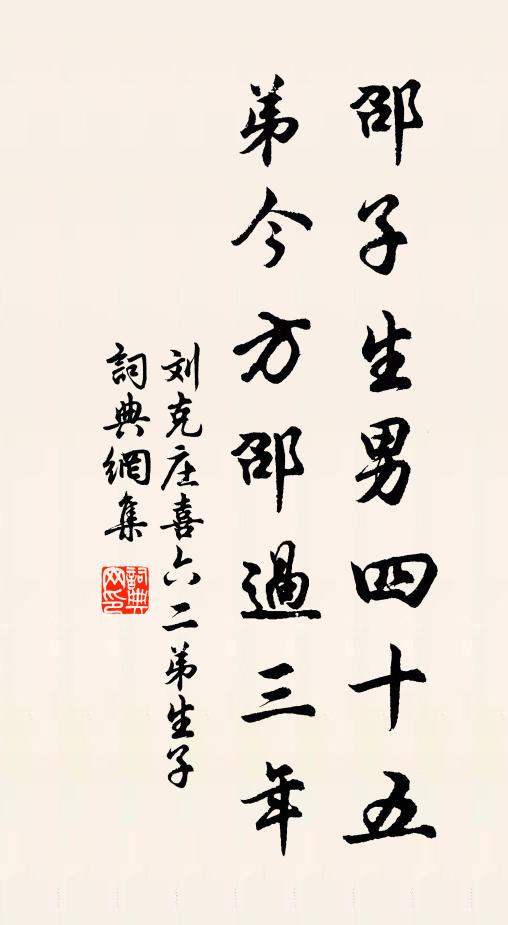 邵子生男四十五
弟今方邵過三年
刘克庄喜六二弟生子
詞典網集
詞典
网印